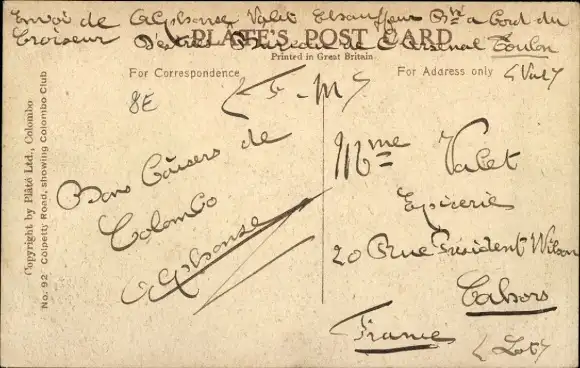 Envoi de Alphonse Valet Chauffeur Bté à bord du
Croiseur D'estrées Bureau de l'Arsenal Toulon
PLÂTÉ'S POST CARD
Printed in Great Britain
(Var)
For Correspondence
For Address only
8E
(F-M)
Bons Baisers de
Colombo
Alphonse
Mme Valet
Epicerie
20 Rue Président Wilson
Cahors
France
(Lot)
Copyright by Plâté Ltd., Colombo
No. 92 Colpetty Road, showing Colombo Club